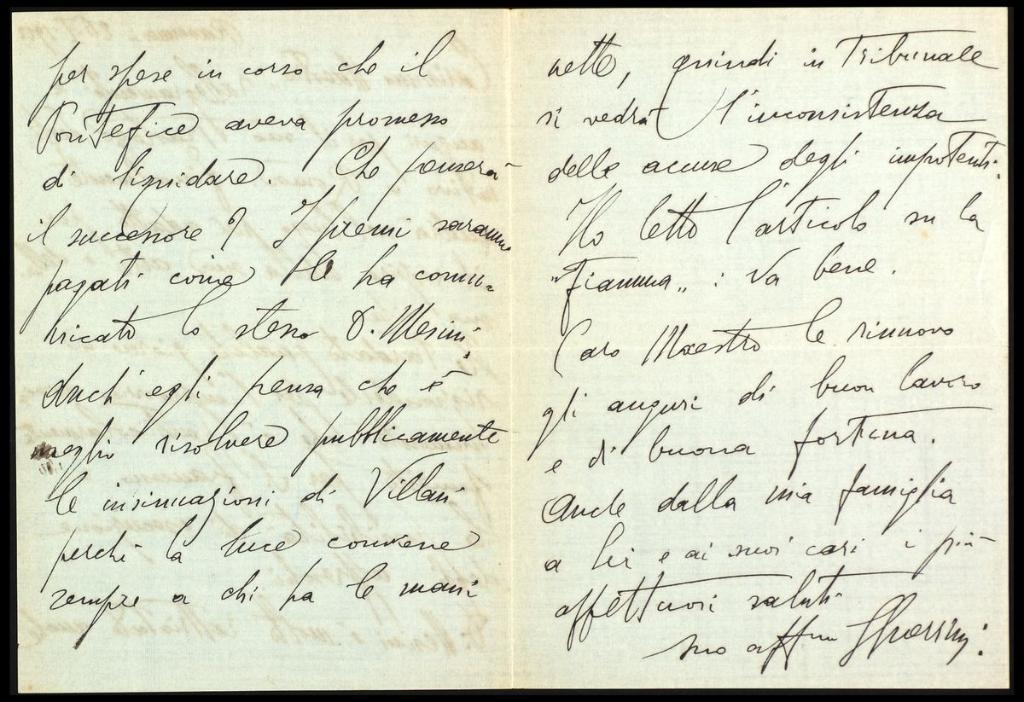 per spese in corso che il
Pontefice aveva promesso
di liquidare. Che penserà
il successore? I premi saranno
pagati come le ha comu-
nicato lo stesso D. Mesini.
Anch'egli pensa che è
meglio risolvere pubblicamente
le insinuazioni di Villani
perché la luce conviene
sempre a chi ha le mani
nette, quindi in Tribunale
si vedrà l'inconsistenza
delle accuse degli impotenti.
Ho letto l'articolo su la
"Fiamma": va bene.
Caro Maestro le rinnovo
gli auguri di buon lavoro
e di buona fortuna.
Anche dalla mia famiglia
a lei e ai suoi cari i più
affettuosi saluti
suo affmo